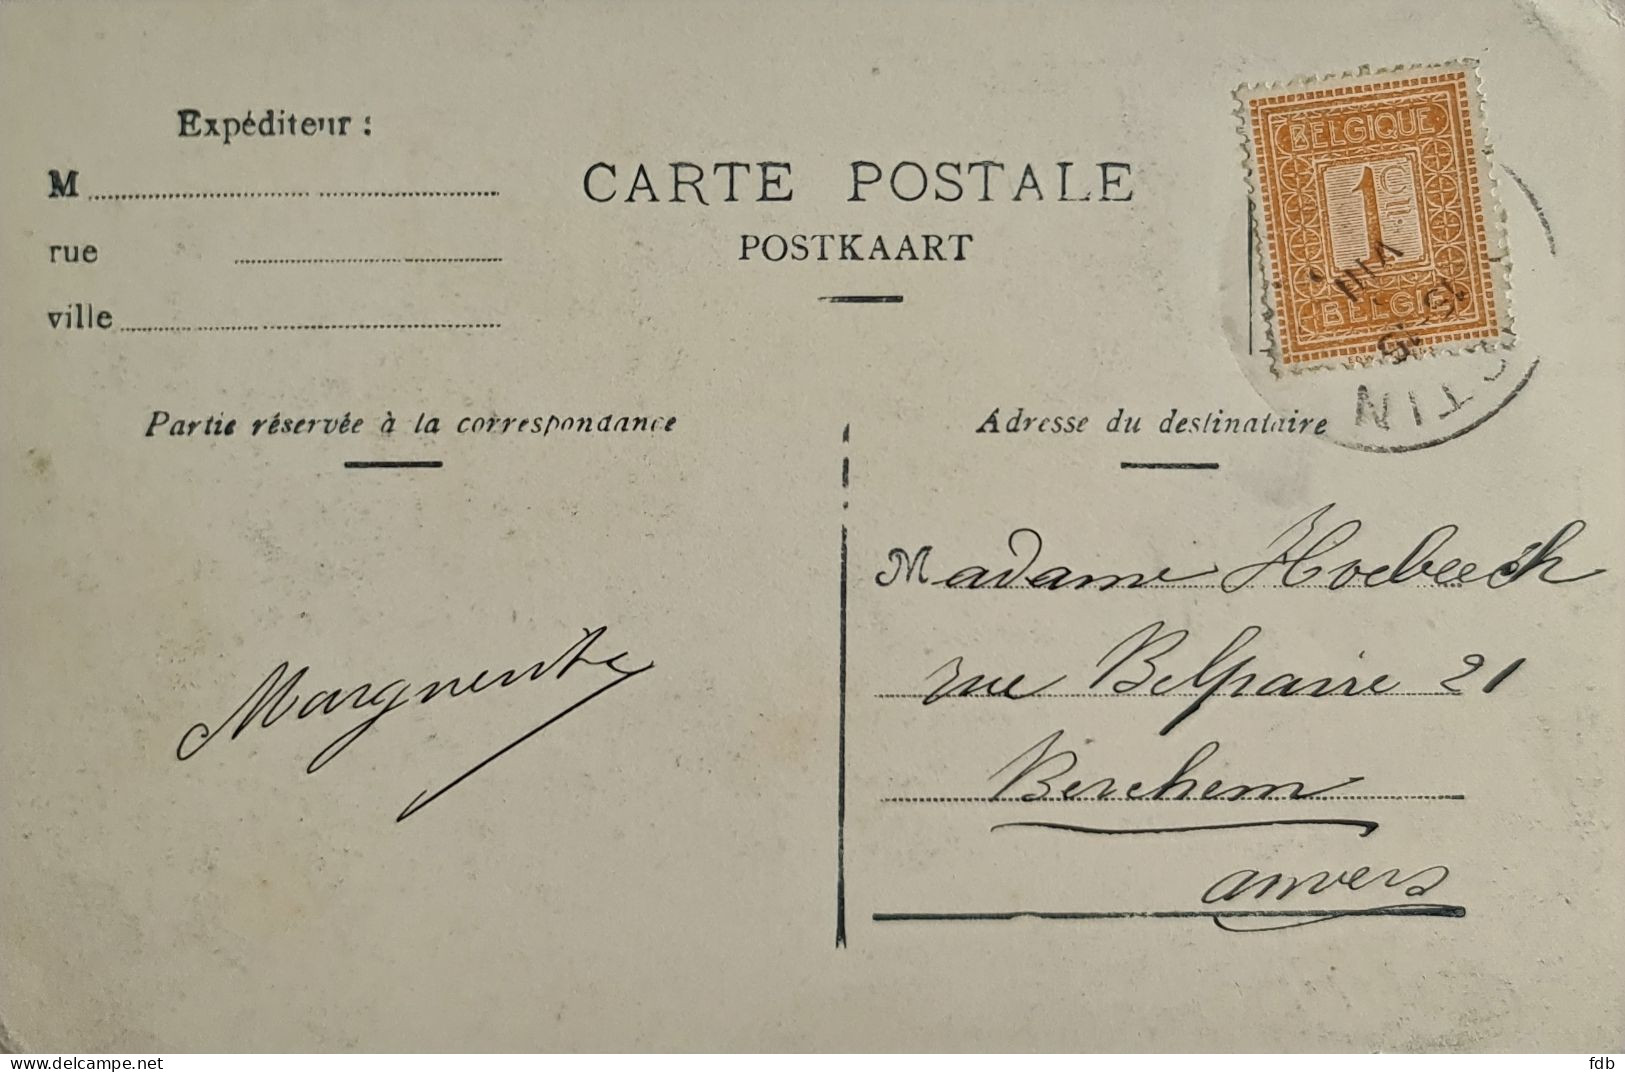 Expéditeur :
M
rue
ville
CARTE POSTALE
POSTKAART
BELGIQUE
1 Cn.
BELGIË
VIII
Partie réservée à la correspondance
Adresse du destinataire
Madame Hoebeeck
rue Belpaire 21
Berchem
anvers
Marguerite
https://www.delcampe.net
fdb